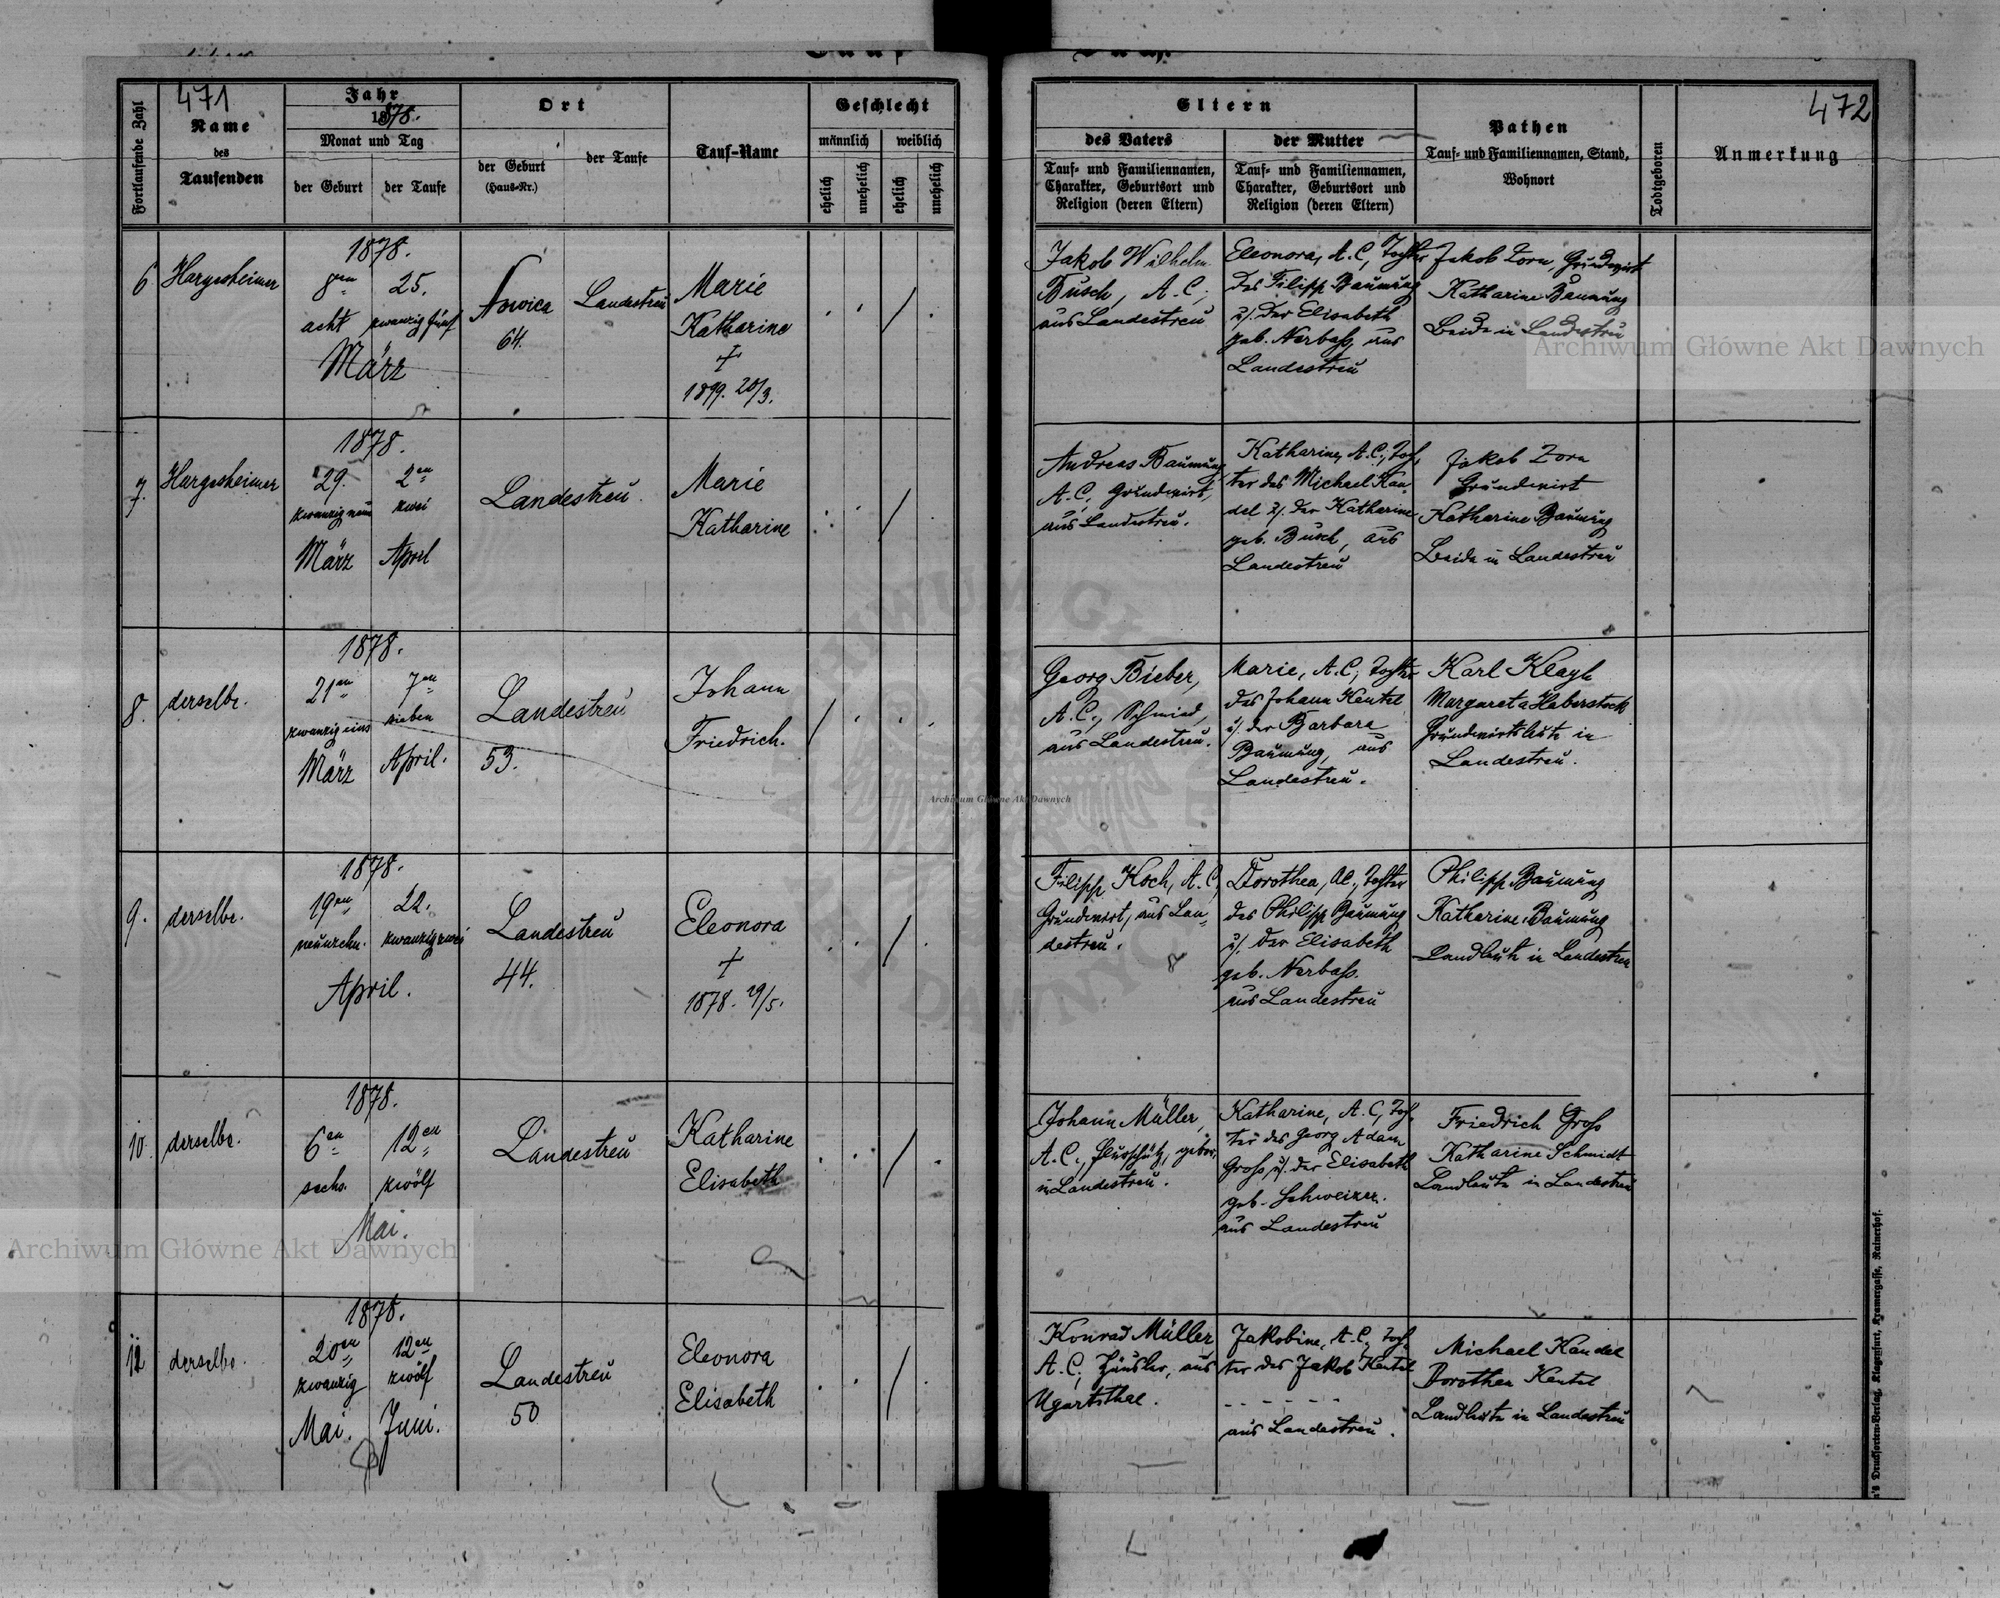 471
Fortlaufende Zahl
Name
des
Taufenden
Jahr
1878.
Monat und Tag
der Geburt
der Taufe
Ort
der Geburt
(Haus-Nr.)
der Taufe
Tauf-Name
Geschlecht
männlich
weiblich
ehelich
unehelich
ehelich
unehelich
6
Hargesheimer
1878.
8en
25.
acht
zwanzig fünf
März
64.
Landestreu
Marie
Katharine
+
1899. 20/3.
7.
Hargesheimer
1878.
29.
2en
zwanzig neun
zwei
März
April
Landestreu.
Marie
Katharine
8.
derselbe.
1878.
21en
7en
zwanzig eins
sieben
März
April.
Landestreu
53.
Johann
Friedrich.
9.
derselbe.
1878.
19en
22.
neunzehn.
zwanzig zwei
April.
Landestreu
44.
Eleonora
+
1878. 29/5.
10.
derselbe.
1878.
6en
12en
sechs.
zwölf
Mai.
Landestreu
Katharine
Elisabeth
derselbe.
1878.
20en
12en
zwanzig
zwölf
Mai.
Juni.
Landestreu
50
Eleonora
Elisabeth
472
Eltern
des Vaters
Tauf- und Familiennamen,
Charakter, Geburtsort und
Religion (deren Eltern)
der Mutter
Tauf- und Familiennamen,
Charakter, Geburtsort und
Religion (deren Eltern)
Pathen
Tauf- und Familiennamen, Stand,
Wohnort
Todtgeboren
Anmerkung
Jakob Wilhelm
Busch, A. C.,
aus Landestreu
Eleonora, A. C., Tochter
des Filipp Baumung
u/. der Elisabeth
geb. Nerbass, aus
Landestreu
Jakob Zorn, Grundwirt
Katharine Baumung
Beide in Landestreu
Andreas Baumung
A. C., Grundwirt,
aus Landestreu.
Katharine, A. C., Toch-
ter des Michael Kan-
del u/. der Katharine
geb. Busch, aus
Landestreu
Jakob Zorn
Grundwirt
Katharine Baumung
Beide in Landestreu
Georg Bieber,
A. C., Schmied,
aus Landestreu.
Marie, A. C., Tochter
des Johann Keutel
u/. der Barbara
Baumung, aus
Landestreu.
Karl
Margareta Haberstock
Grundwirtsleute in
Landestreu.
Filipp Koch, A. C.,
Grundwirt, aus Lan-
destreu.
Dorothea, AC., Tochter
des Philipp Baumung
u/. der Elisabeth
geb. Nerbass.
aus Landestreu
Philipp Baumung
Katharine Baumung
Landleute in Landestreu
Johann Müller,
A. C., Flurschütz, gebor.
in Landestreu.
Katharine, A. C., Toch-
ter des Georg Adam
Gross u/. der Elisabeth
geb. Schweizer.
aus Landestreu
Friedrich Gross
Katharine Schmidt
Landleute in Landestreu
Konrad Müller
A. C., Häusler, aus
Ugartsthal.
Jakobine, A. C., Toch-
ter des Jakob Keutel
- - - - - -
aus Landestreu.
Michael Kandel
Dorothea Keutel
Landleute in Landestreu
's Drucksorten-Verlag, Klagenfurt, Kramergasse, Rainerhof.
Archiwum Główne Akt Dawnych
Archiwum Główne Akt Dawnych
Archiwum Główne Akt Dawnych